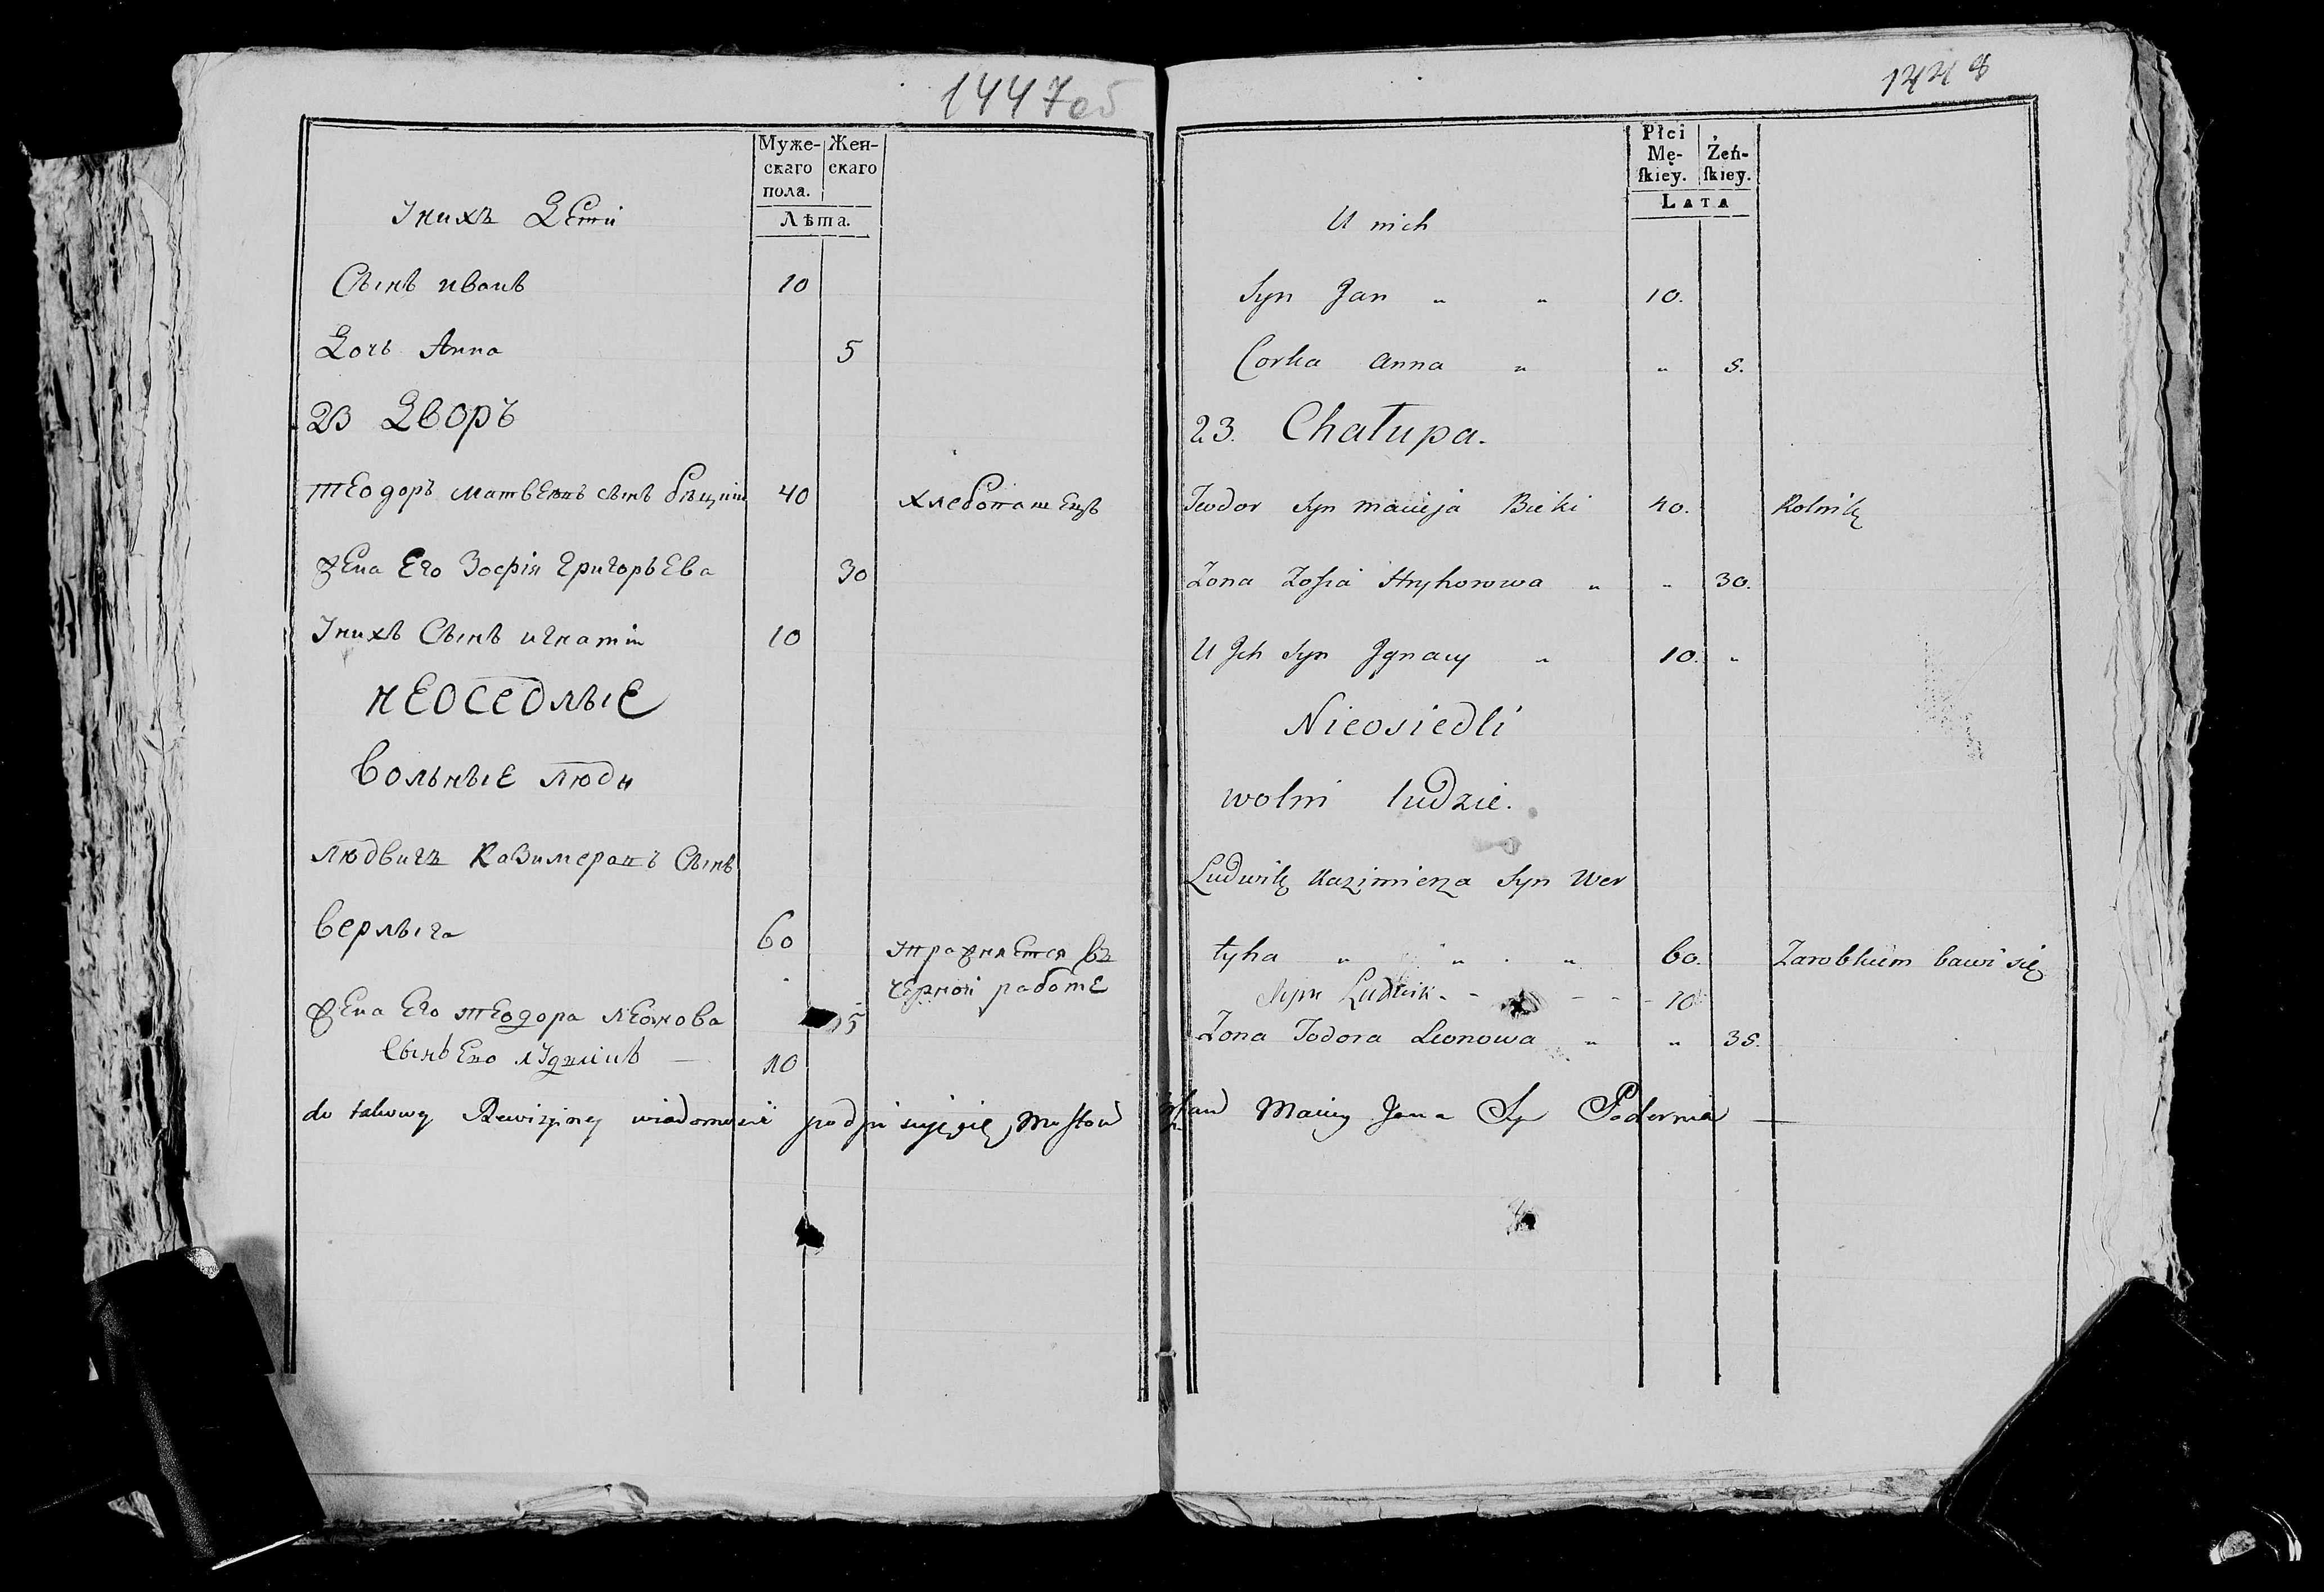 1447об
Муже-
скаго
пола.
Жен-
скаго
Лѣта.
Унихъ Дети
Сынъ иванъ 10
Дочь Анна 5
23 Дворъ
теодоръ матвеевъ сынъ 40 хлебопашецъ
жена Его Зосфія григорьева 30
Унихъ Сынъ игнатіи 10
неоседлые
вольные люди
людвигъ Казимеровъ Сынъ
верлыга 60 упражняется въ
черной работе
жена Его теодора леонова 5
Сынъ Его 10
do takowey Rewizyiney wiadomości podpisuję się
1448
Płci
Mę-
skiey.
Żeń-
skiey.
Lata
U nich
Syn Jan " " 10.
Corka Anna " " 5.
23. Chałupa.
Teodor Syn Macieja Bicki 40. Rolnik
Zona Zofia Hryhorowa " " 30.
U Jch Syn Jgnacy " 10. "
Nieosiedli
wolni ludzie.
Ludwik Kazimierza Syn Wer
łyha " " " 60. Zarobkiem bawi się
Syn Ludwik - - - - 10
Zona Todora Leonowa " " 35.
Maciey Jana Sy